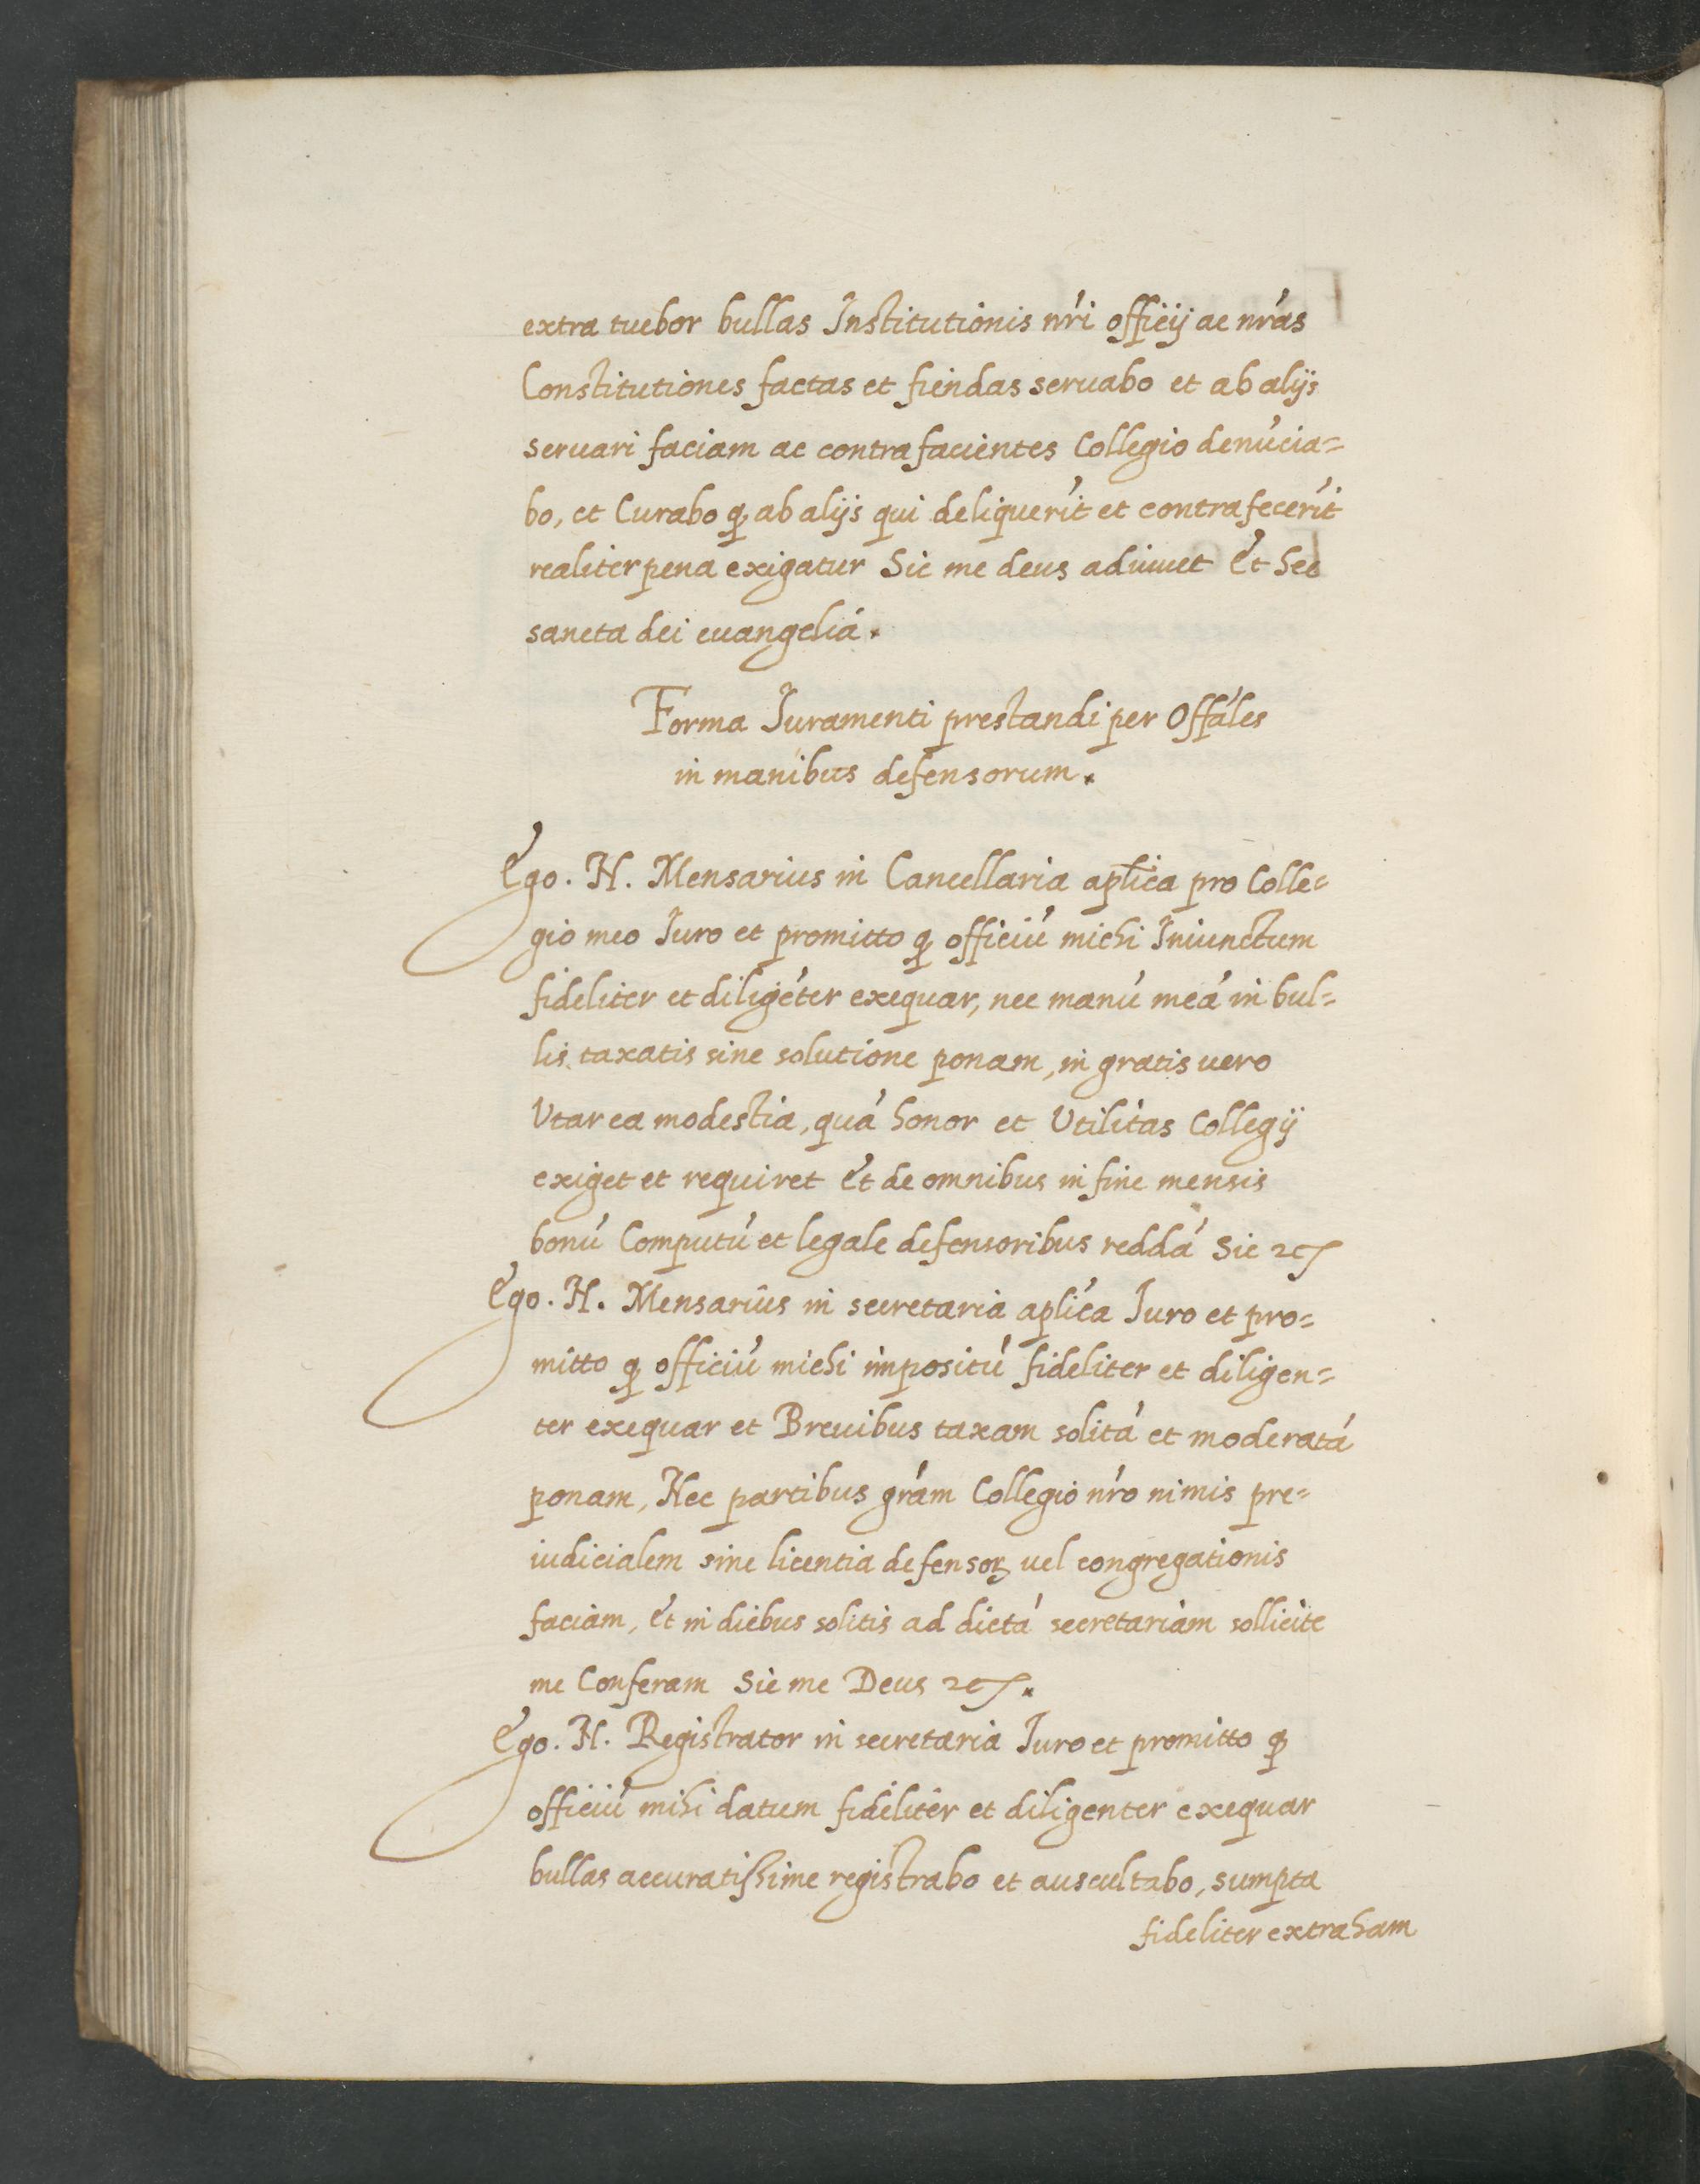 extra tuebor bullas Institutionis nr̃i officij ac nr̃as
Constitutiones factas et fiendas seruabo et ab alijs
seruari faciam ac contrafacientes Collegio denũcia=
bo, et Curabo ꝙ ab alijs qui deliquerĩt et contrafecerĩt
realiter pena exigatur Sic me deus adiuuet Et hec
sancta dei euangelia.
Forma Iuramenti prestandi per Offãles
in manibus defensorum.
Ego. N. Mensarius in Cancellaria aplĩca pro Colle=
gio meo Iuro et promitto ꝙ officiũ michi Iniunctum
fideliter et diligẽter exequar, nec manũ meã in bul=
lis taxatis sine solutione ponam, in gratis uero
Vtar ea modestia, quã honor et Vtilitas Collegij
exiget et requiret Et de omnibus in fine mensis
bonũ Computũ et legale defensoribus reddã Sic ⁊c
Ego. N. Mensarius in secretaria aplĩca Iuro et pro=
mitto ꝙ officiũ michi impositũ fideliter et diligen=
ter exequar et Breuibus taxam solitã et moderatã
ponam, Nec partibus grãm Collegio nr̃o nimis pre=
iudicialem sine licentia defensoꝝ uel congregationis
faciam, Et in diebus solitis ad dictã secretariam sollicite
me Conferam Sic me Deus ⁊c.
Ego. N. Registrator in secretaria Iuro et promitto ꝙ
officiũ mihi datum fideliter et diligenter exequar
bullas accuratissime registrabo et auscultabo, sumpta
fideliter extraham